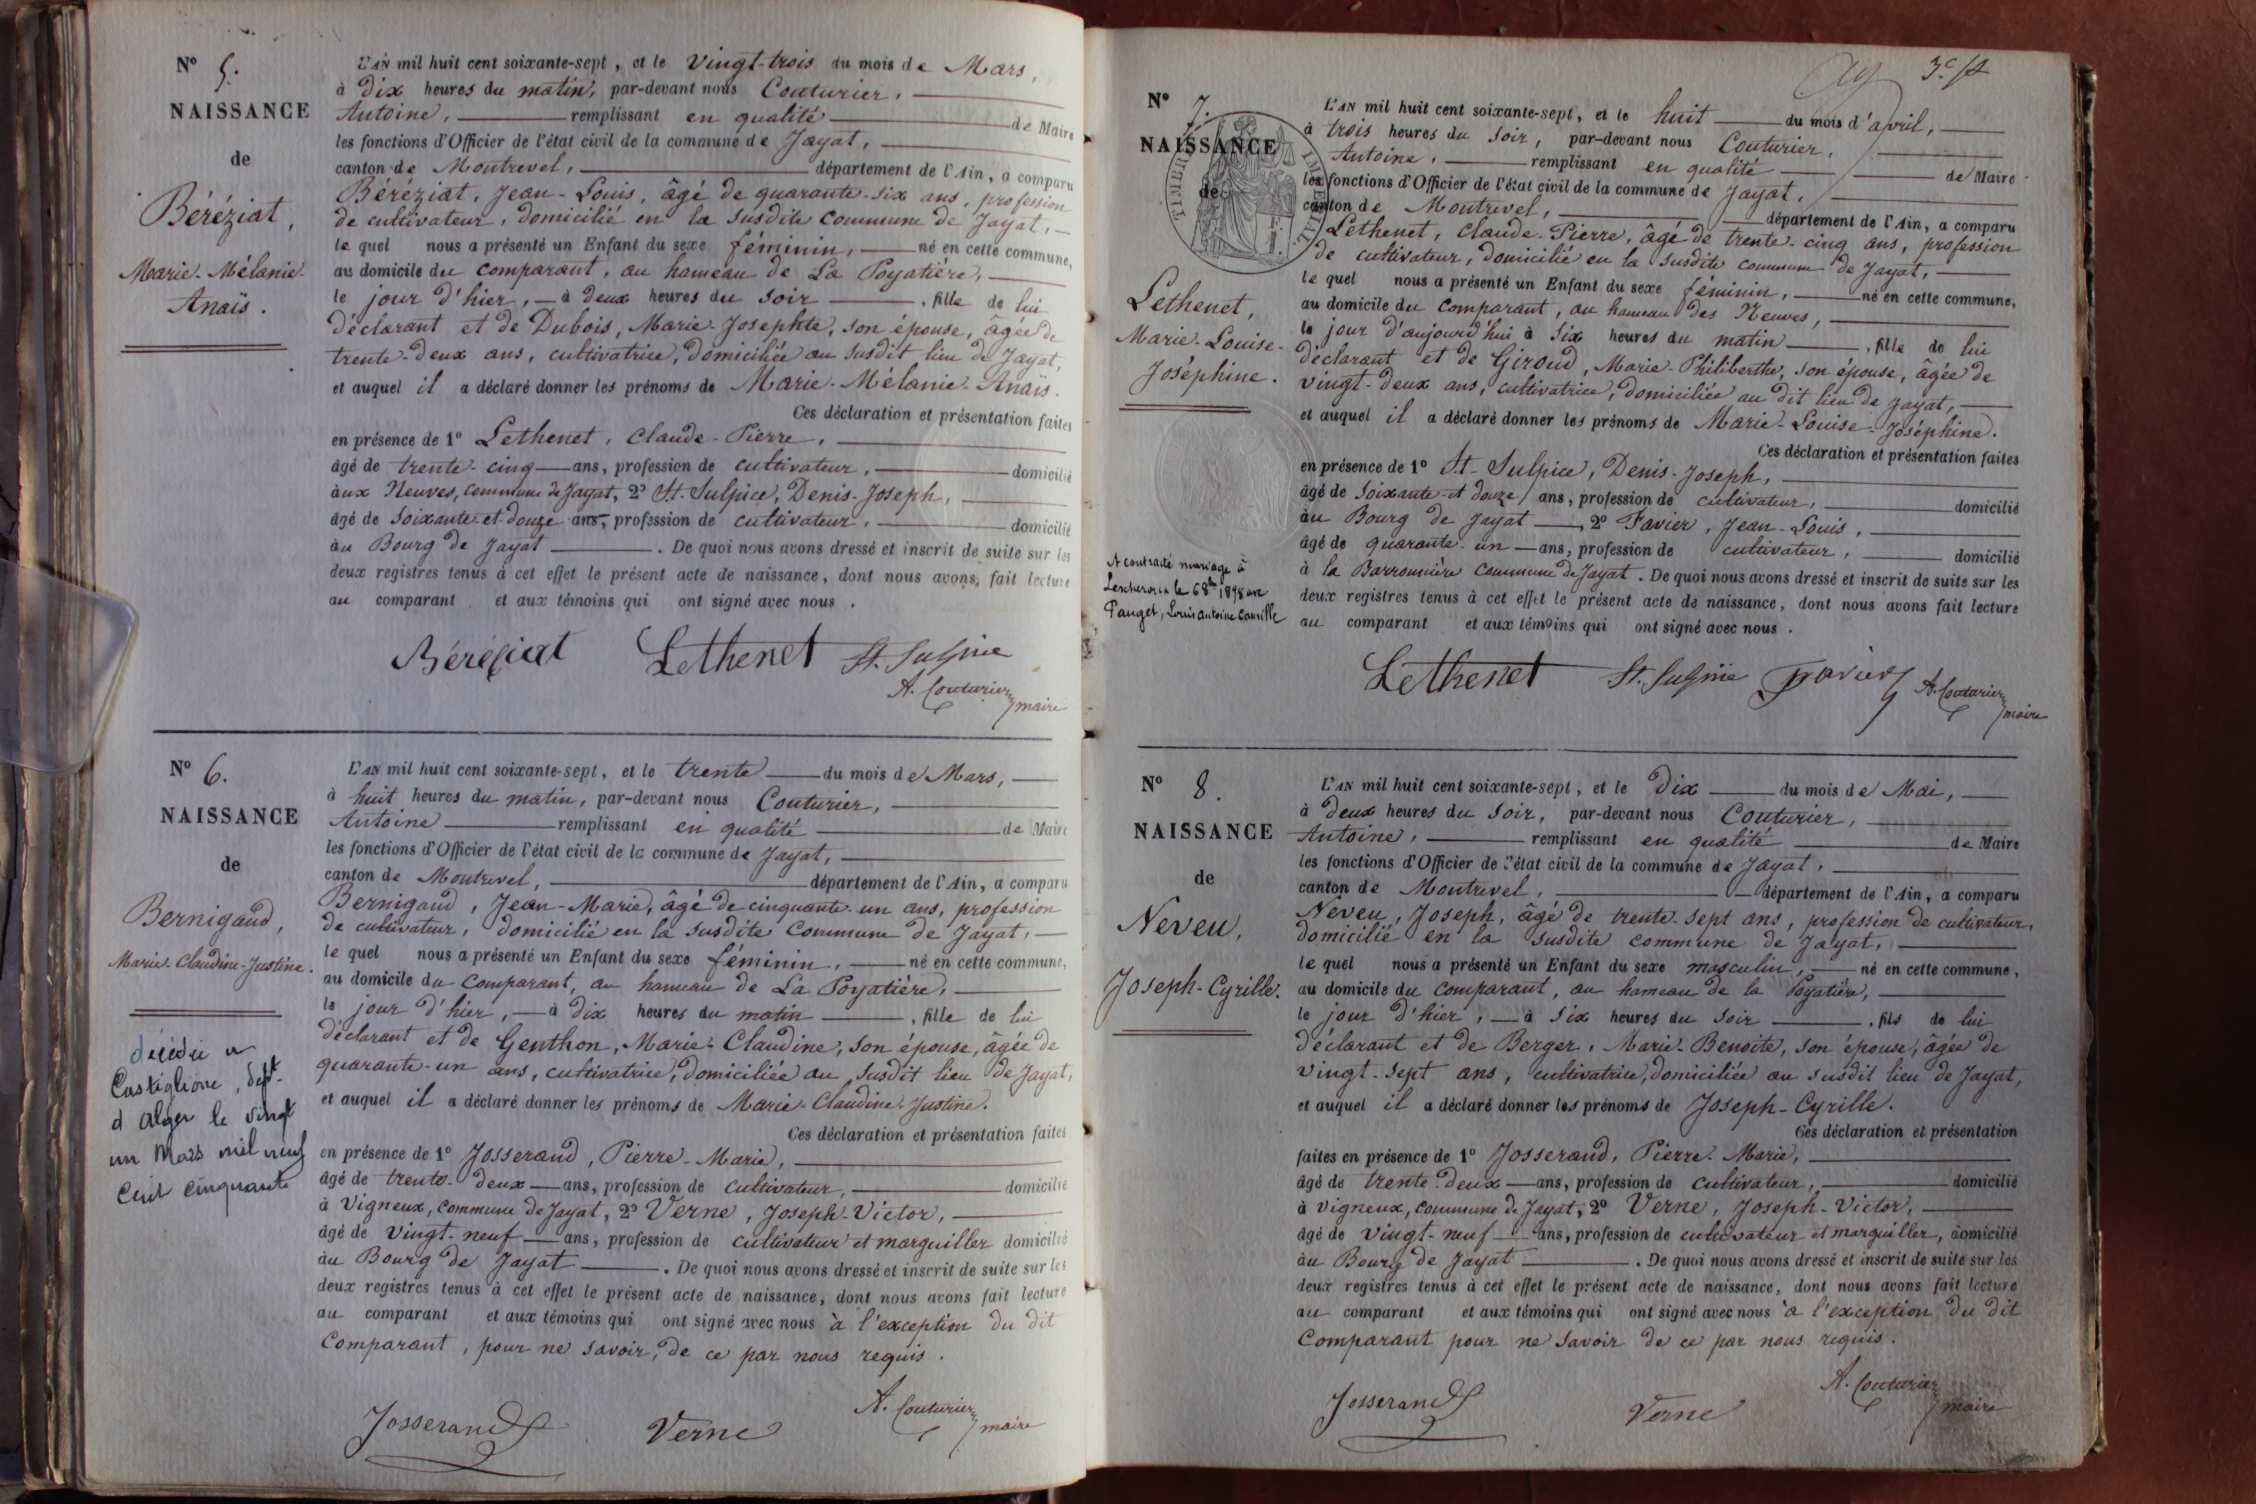 N° 5.
NAISSANCE
de
Béréziat,
Marie-Mélanie-
Anaïs.
L'AN mil huit cent soixante-sept, et le vingt-trois du mois de Mars,
à dix heures du matin, par-devant nous Couturier,
Antoine, remplissant en qualité de Maire
les fonctions d'Officier de l'état civil de la commune de Jayat,
canton de Montrevel, département de l'Ain, a comparu
Béréziat, Jean-Louis, âgé de quarante-six ans, profession
de cultivateur, domicilié en la susdite commune de Jayat,
le quel nous a présenté un Enfant du sexe féminin, né en cette commune,
au domicile du comparant, au hameau de La Poyatière,
le jour d'hier, à deux heures du soir, fille de lui
déclarant et de Dubois, Marie-Josephte, son épouse, âgée de
trente-deux ans, cultivatrice, domiciliée au susdit lieu de Jayat,
et auquel il a déclaré donner les prénoms de Marie-Mélanie-Anaïs.
Ces déclaration et présentation faites
en présence de 1° Lethenet, Claude-Pierre,
âgé de trente-cinq ans, profession de cultivateur, domicilié
àux Neuves, commune de Jayat, 2° St-Sulpice, Denis-Joseph,
âgé de soixante-et-douze ans, profession de cultivateur, domicilié
àu Bourg de Jayat. De quoi nous avons dressé et inscrit de suite sur les
deux registres tenus à cet effet le présent acte de naissance, dont nous avons fait lecture
au comparant et aux témoins qui ont signé avec nous.
Béréziat Lethenet St. Sulpice
A. Couturier
maire
N° 6.
NAISSANCE
de
Bernigaud,
Marie-Claudine-Justine.
décédée a
Castiglione, dept
d'Alger le vingt
un Mars mil neuf
cent cinquante
L'AN mil huit cent soixante-sept, et le trente du mois de Mars,
à huit heures du matin, par-devant nous Couturier,
Antoine remplissant en qualité de Maire
les fonctions d'Officier de l'état civil de la commune de Jayat,
canton de Montrevel, département de l'Ain, a comparu
Bernigaud, Jean-Marie, âgé de cinquante-un ans, profession
de cultivateur, domicilié en la susdite commune de Jayat,
le quel nous a présenté un Enfant du sexe féminin, né en cette commune,
au domicile du comparant, au hameau de La Poyatière,
le jour d'hier, à dix heures du matin, fille de lui
déclarant et de Genthon, Marie-Claudine, son épouse, âgée de
quarante-un ans, cultivatrice, domiciliée au susdit lieu de Jayat,
et auquel il a déclaré donner les prénoms de Marie-Claudine-Justine.
Ces déclaration et présentation faites
en présence de 1° Josserand, Pierre-Marie,
âgé de trente-deux ans, profession de cultivateur, domicilié
à Vigneux, commune de Jayat, 2° Verne, Joseph-Victor,
âgé de vingt-neuf ans, profession de cultivateur et marguiller domicilié
àu Bourg de Jayat. De quoi nous avons dressé et inscrit de suite sur les
deux registres tenus à cet effet le présent acte de naissance, dont nous avons fait lecture
au comparant et aux témoins qui ont signé avec nous à l'exception du dit
comparant, pour ne savoir, de ce par nous requis.
Josserand Verne A. Couturier
maire
3e ft
N° 7.
NAISSANCE
de
TIMBRE IMPÉRIAL
Lethenet,
Marie-Louise-
Joséphine.
A contracté mariage à
Lescheroux le 6 8bre 1898 avec
Pauget, Louis Antoine Camille
L'AN mil huit cent soixante-sept, et le huit du mois d'avril,
à trois heures du soir, par-devant nous Couturier,
Antoine, remplissant en qualité de Maire
les fonctions d'Officier de l'état civil de la commune de Jayat,
canton de Montrevel, département de l'Ain, a comparu
Lethenet, Claude-Pierre, âgé de trente-cinq ans, profession
de cultivateur, domicilié en la susdite commune de Jayat,
le quel nous a présenté un Enfant du sexe féminin, né en cette commune,
au domicile du comparant, au hameau des Neuves,
le jour d'aujourd'hui à six heures du matin, fille de lui
déclarant et de Giroud, Marie-Philiberthe, son épouse, âgée de
vingt-deux ans, cultivatrice, domiciliée au dit lieu de Jayat,
et auquel il a déclaré donner les prénoms de Marie-Louise-Joséphine.
Ces déclaration et présentation faites
en présence de 1° St-Sulpice, Denis-Joseph,
âgé de soixante-et douze ans, profession de cultivateur, domicilié
àu Bourg de Jayat, 2° Favier, Jean-Louis,
âgé de quarante-un ans, profession de cultivateur, domicilié
à la Barronnière commune de Jayat. De quoi nous avons dressé et inscrit de suite sur les
deux registres tenus à cet effet le présent acte de naissance, dont nous avons fait lecture
au comparant et aux témoins qui ont signé avec nous.
Lethenet St. Sulpice Favier A. Couturier
maire
N° 8.
NAISSANCE
de
Neveu,
Joseph-Cyrille.
L'AN mil huit cent soixante-sept, et le dix du mois de Mai,
à deux heures du soir, par-devant nous Couturier,
Antoine, remplissant en qualité de Maire
les fonctions d'Officier de l'état civil de la commune de Jayat,
canton de Montrevel, département de l'Ain, a comparu
Neveu, Joseph, âgé de trente-sept ans, profession de cultivateur,
domicilié en la susdite commune de Jayat,
le quel nous a présenté un Enfant du sexe masculin, né en cette commune,
au domicile du comparant, au hameau de la Poyatière,
le jour d'hier, à six heures du soir, fils de lui
déclarant et de Berger, Marie-Benoite, son épouse, âgée de
vingt-sept ans, cultivatrice, domiciliée au susdit lieu de Jayat,
et auquel il a déclaré donner les prénoms de Joseph-Cyrille.
Ces déclaration et présentation
faites en présence de 1° Josserand, Pierre-Marie,
âgé de trente-deux ans, profession de cultivateur, domicilié
à Vigneux, commune de Jayat, 2° Verne, Joseph-Victor,
âgé de vingt-neuf ans, profession de cultivateur et marguiller, domicilié
àu Bourg de Jayat. De quoi nous avons dressé et inscrit de suite sur les
deux registres tenus à cet effet le présent acte de naissance, dont nous avons fait lecture
au comparant et aux témoins qui ont signé avec nous à l'exception du dit
comparant pour ne savoir de ce par nous requis.
Josserand Verne A. Couturier
maire